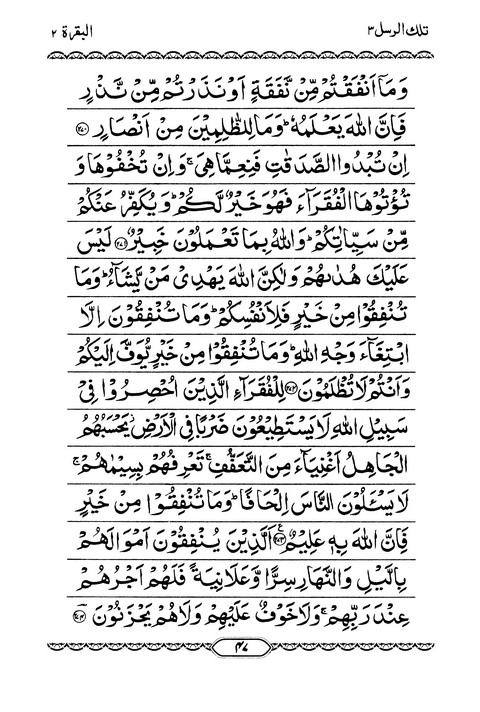 تلك الرسل ٣
البقرة ٢
وَمَآ اَنْفَقْتُمْ مِّنْ نَّفَقَةٍ اَوْ نَذَرْتُمْ مِّنْ نَّذْرٍ
فَاِنَّ اللّٰهَ يَعْلَمُهٗ ؕ وَمَا لِلظّٰلِمِيْنَ مِنْ اَنْصَارٍ ﴿۲۷۰﴾
اِنْ تُبْدُوا الصَّدَقٰتِ فَنِعِمَّا هِىَ ۚ وَاِنْ تُخْفُوْهَا وَ
تُؤْتُوْهَا الْفُقَرَآءَ فَهُوَ خَيْرٌ لَّكُمْ ؕ وَيُكَفِّرُ عَنْكُمْ
مِّنْ سَيِّاٰتِكُمْ ؕ وَاللّٰهُ بِمَا تَعْمَلُوْنَ خَبِيْرٌ ﴿۲۷۱﴾ لَيْسَ
عَلَيْكَ هُدٰىهُمْ وَلٰكِنَّ اللّٰهَ يَهْدِىْ مَنْ يَّشَآءُ ؕ وَمَا
تُنْفِقُوْا مِنْ خَيْرٍ فَلِاَنْفُسِكُمْ ؕ وَمَا تُنْفِقُوْنَ اِلَّا
ابْتِغَآءَ وَجْهِ اللّٰهِ ؕ وَمَا تُنْفِقُوْا مِنْ خَيْرٍ يُّوَفَّ اِلَيْكُمْ
وَاَنْتُمْ لَا تُظْلَمُوْنَ ﴿۲۷۲﴾ لِلْفُقَرَآءِ الَّذِيْنَ اُحْصِرُوْا فِىْ
سَبِيْلِ اللّٰهِ لَا يَسْتَطِيْعُوْنَ ضَرْبًا فِى الْاَرْضِ ؗ يَحْسَبُهُمُ
الْجَاهِلُ اَغْنِيَآءَ مِنَ التَّعَفُّفِ ۚ تَعْرِفُهُمْ بِسِيْمٰهُمْ ۚ
لَا يَسْـَٔلُوْنَ النَّاسَ اِلْحَافًا ؕ وَمَا تُنْفِقُوْا مِنْ خَيْرٍ
فَاِنَّ اللّٰهَ بِهٖ عَلِيْمٌ ﴿۲۷۳﴾ اَلَّذِيْنَ يُنْفِقُوْنَ اَمْوَالَهُمْ
بِالَّيْلِ وَالنَّهَارِ سِرًّا وَّعَلَانِيَةً فَلَهُمْ اَجْرُهُمْ
عِنْدَ رَبِّهِمْ ۚ وَلَا خَوْفٌ عَلَيْهِمْ وَلَا هُمْ يَحْزَنُوْنَ ﴿۲۷۴﴾
۴۷